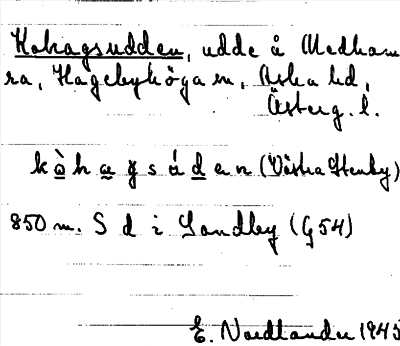 Kohagsudden, udde å Medham
ra, Hagebyhöga sn, Aska hd,
Österg. l.
k ò̲ h a̲ g s ú d̲ e n (Västra Stenby)
850 m. S d i Sandby (G 54)
E. Nordlander 1945